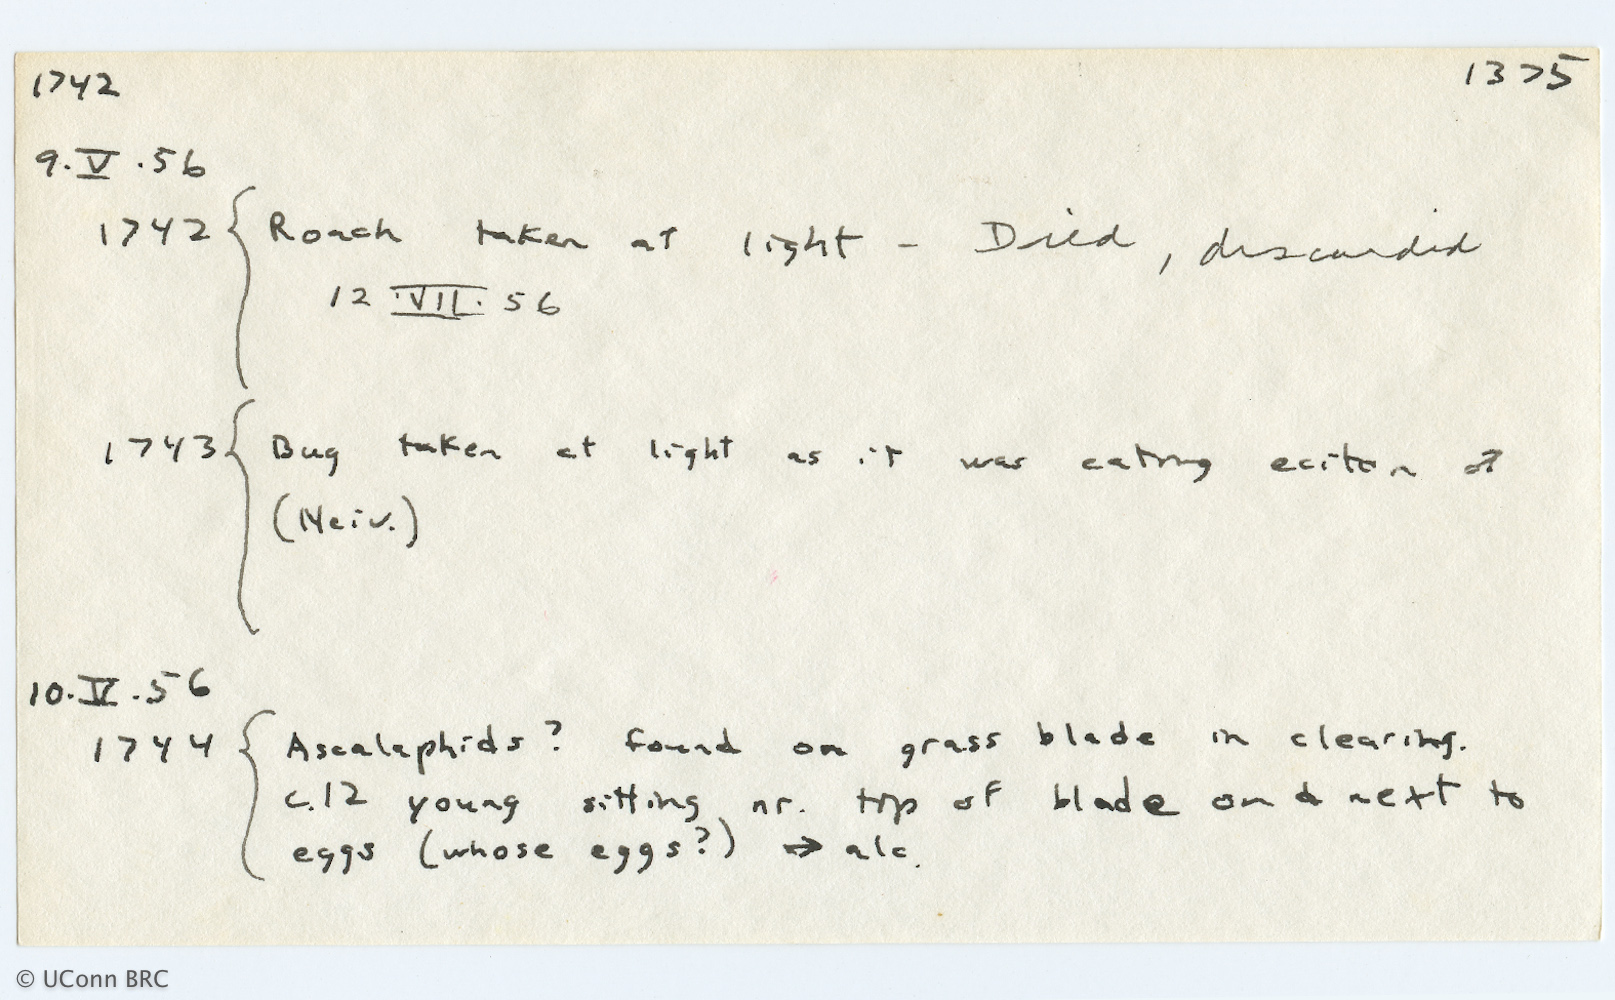 1742 1375
9.V.56
1742 { Roach taken at light - Died, discarded
12.VII.56
1743 { Bug taken at light as it was eating eciton ♂
(Neiv.)
10.V.56
1744 { Ascalaphids? found on grass blade in clearing.
c.12 young sitting nr. tip of blade on & next to
eggs (whose eggs?) → alc.
© UConn BRC